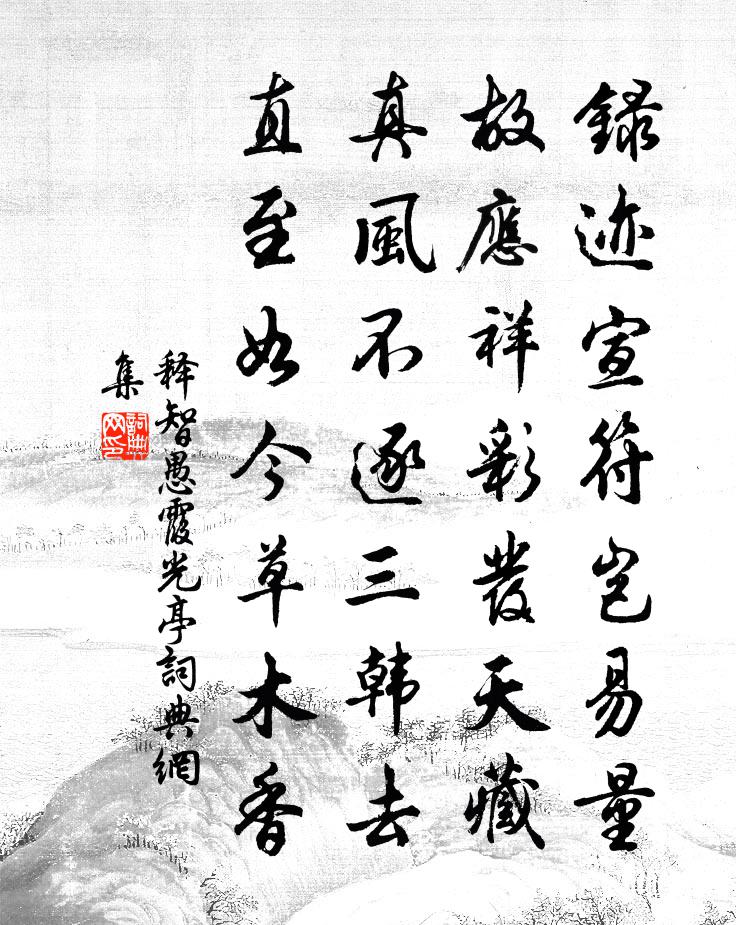 録迹宣符岂易量
故應祥彩發天藏
真風不逐三韩去
直至如今草木香
释智愚霞光亭詞典網
集
詞典網印